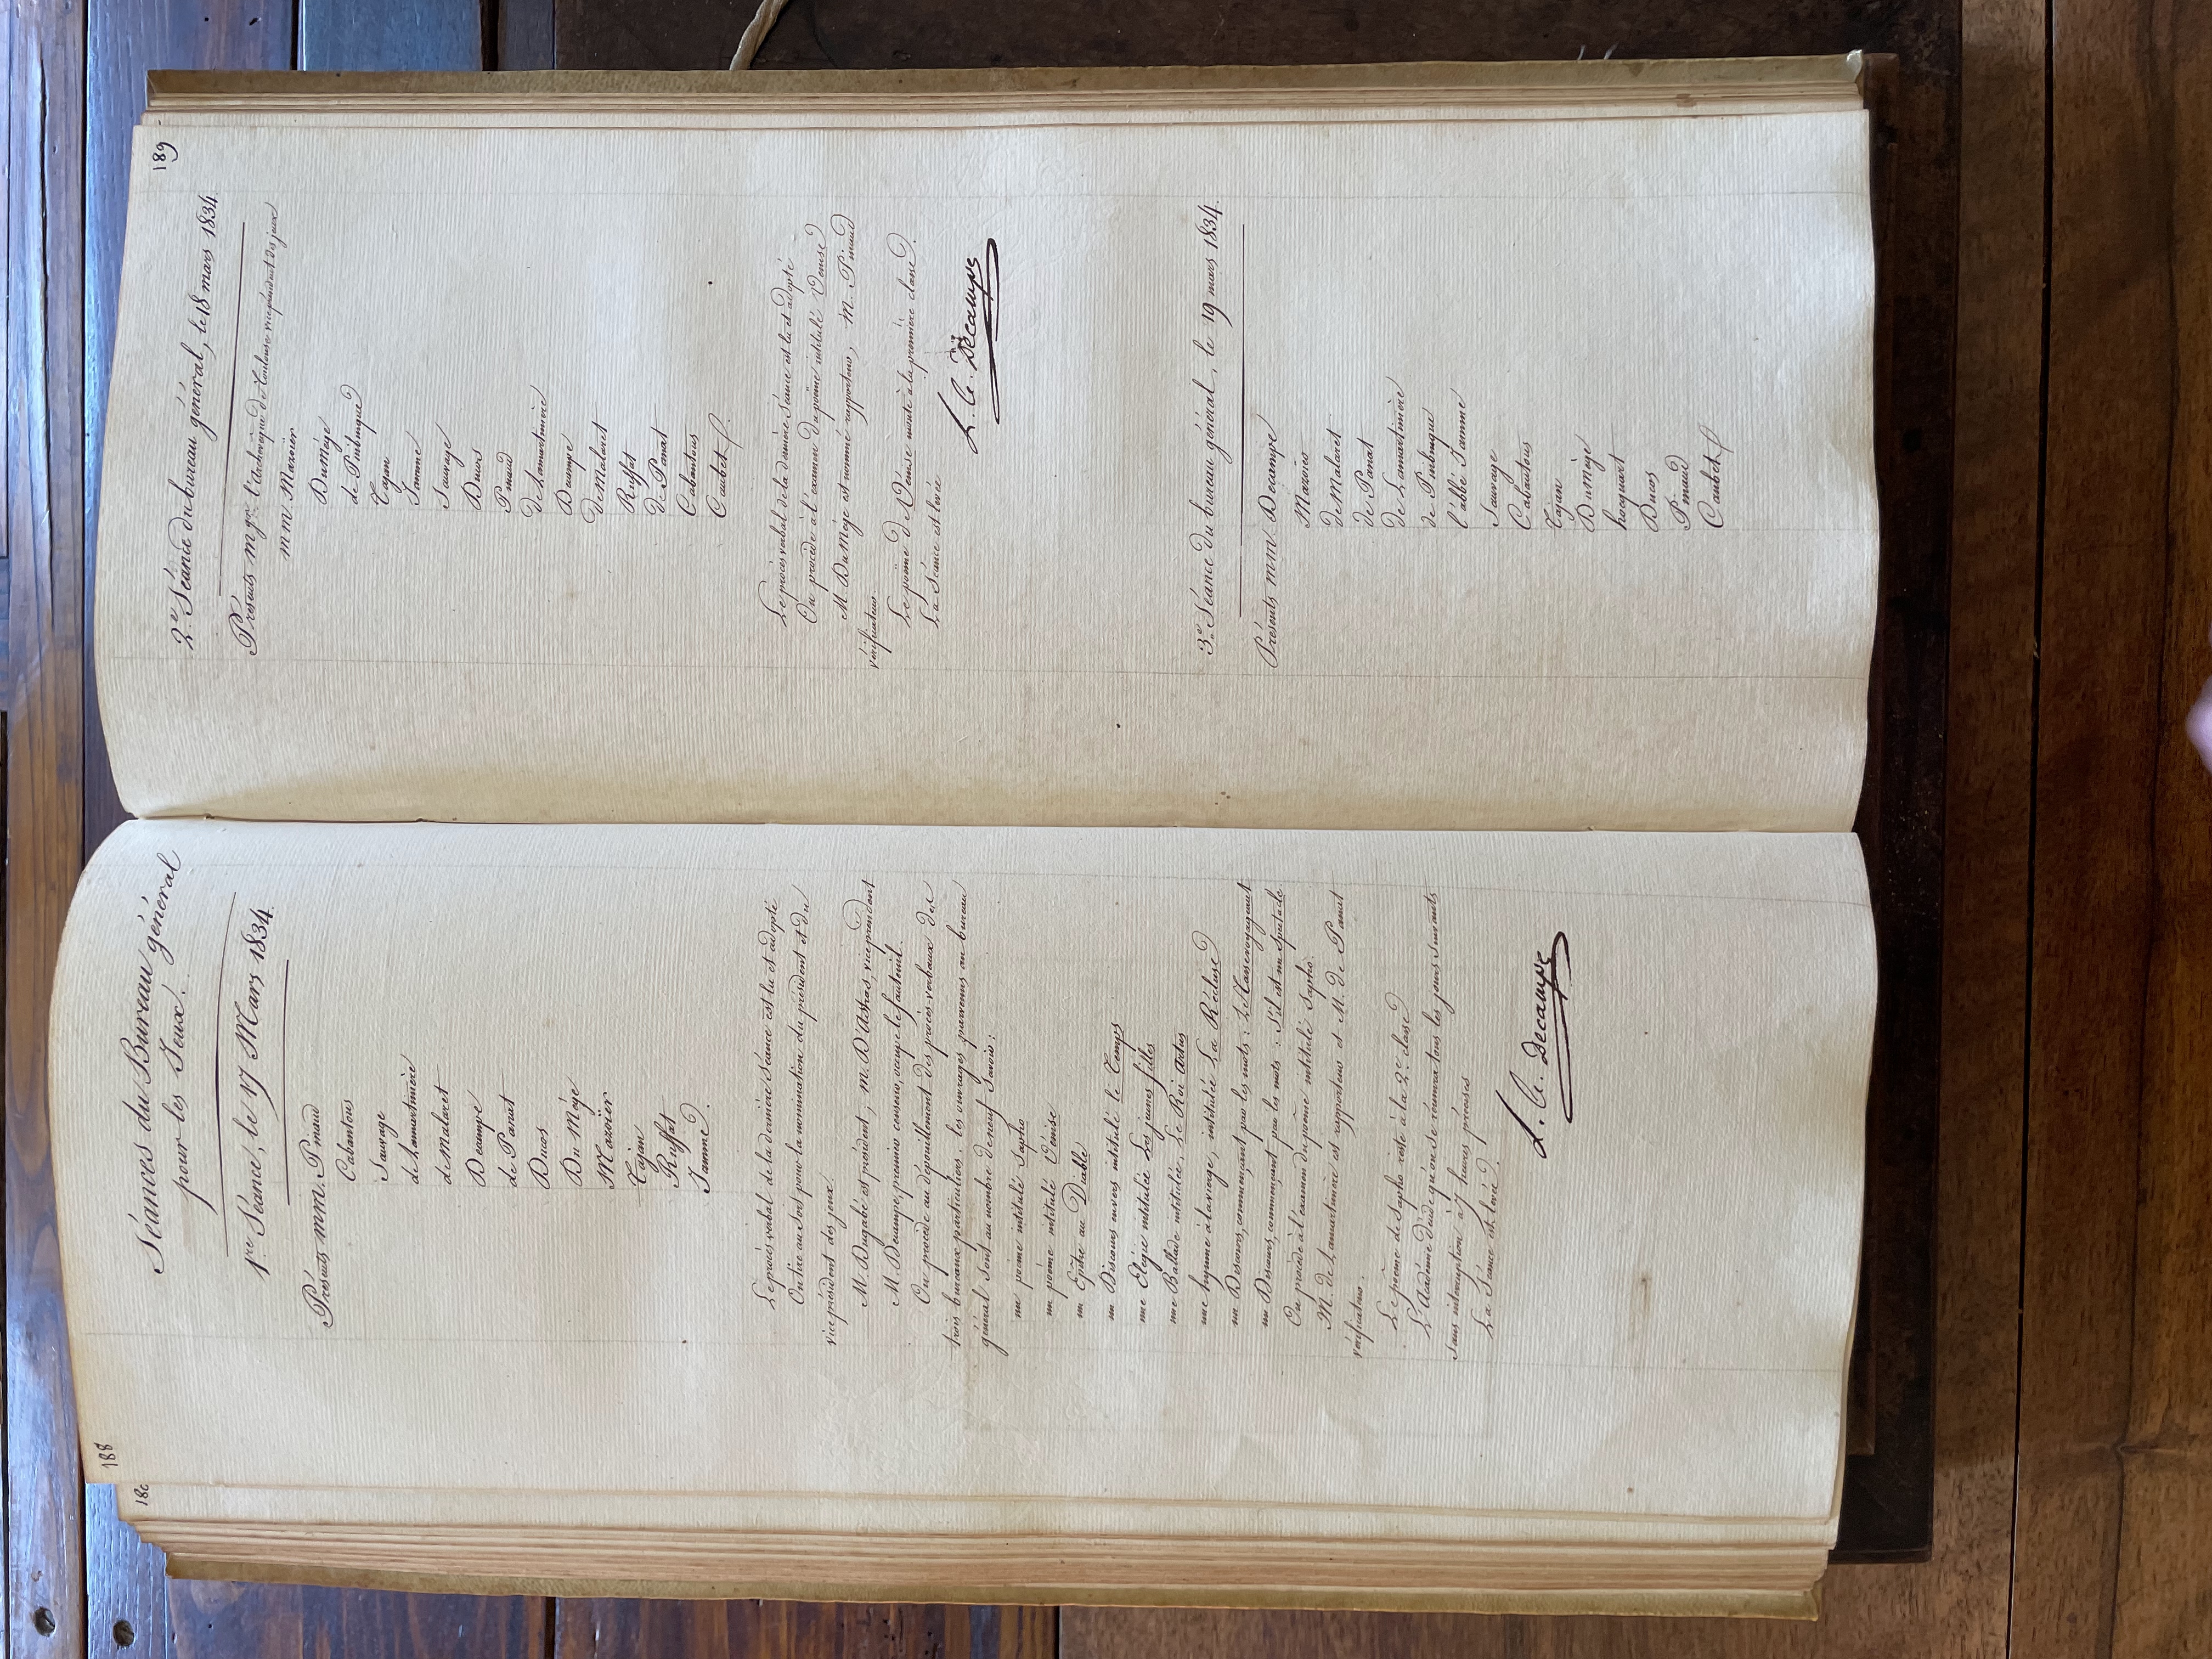 188
Séances du Bureau général
pour les Jeux.
1re Séance, le 17 Mars 1834.
Présents mm. Pinaud
Cabantous
Sauvage
de Lamartinière
de Malaret
Decampe
de Panat
Ducos
Du Mège
Mazoïer
Tajan
Ruffat
Jamme.
Le procès verbal de la dernière séance est lu et adopté
On tire au sort pour la nomination du président et du
vice président des jeux.
M. Dugabé est président, m. D'Astros, vice président
M. Decampe, premier censeur, occupe le fauteuil.
On procède au dépouillement des procès-verbaux des
trois bureaux particuliers. les ouvrages parvenus au bureau
général sont au nombre de neuf savoir :
un poème intitulé Sapho
un poème intitulé Venise
un Epître au Diable
un Discours en vers intitulé le Temps
une Elégie intitulée Les jeunes filles
une Ballade intitulée, Le Roi Artus
une hymne à la vierge, intitulée La Récluse
un Discours, commençant par les mots :
un Discours, commençant par les mots : S'il est un spectacle
On procède à l'examen du poème intitulé Sapho.
M. de Lamartinière est rapporteur et M. de Panat
vérificateur.
Le poème de Sapho reste à la 2e classe
L'Académie décide qu'on se réunira tous les jours suivants
sans interruption à 7 heures précises
La Séance est levée.
L. A. Decampe
189
2e Séance du bureau général, le 18 mars 1834
Présents mgr. l'archevêque de Toulouse vice président des jeux
mm. Mazoier
Dumège
de Pinbuque
Tajan
Jamme
Sauvage
Ducos
Pinaud
de Lamartinière
Decampe
de Malaret
Ruffat
de Panat
Cabantous
Caubet
Le procès verbal de la dernière séance est lu et adopté
On procède à l'examen du poème intitulé Venise
M. Dumège est nommé rapporteur, M. Pinaud
vérificateur.
Le poëme de Venise monte à la première classe.
La Séance est levée
L. A. Decampe
3e Séance du bureau général, le 19 mars 1834.
Présents mm. Decampe
Mazoier
de Malaret
de Panat
de Lamartinière
de Pinbuque
l'abbé Jamme
Sauvage
Cabantous
Tajan
Dumège
hocquart
Ducos
Pinaud
Caubet